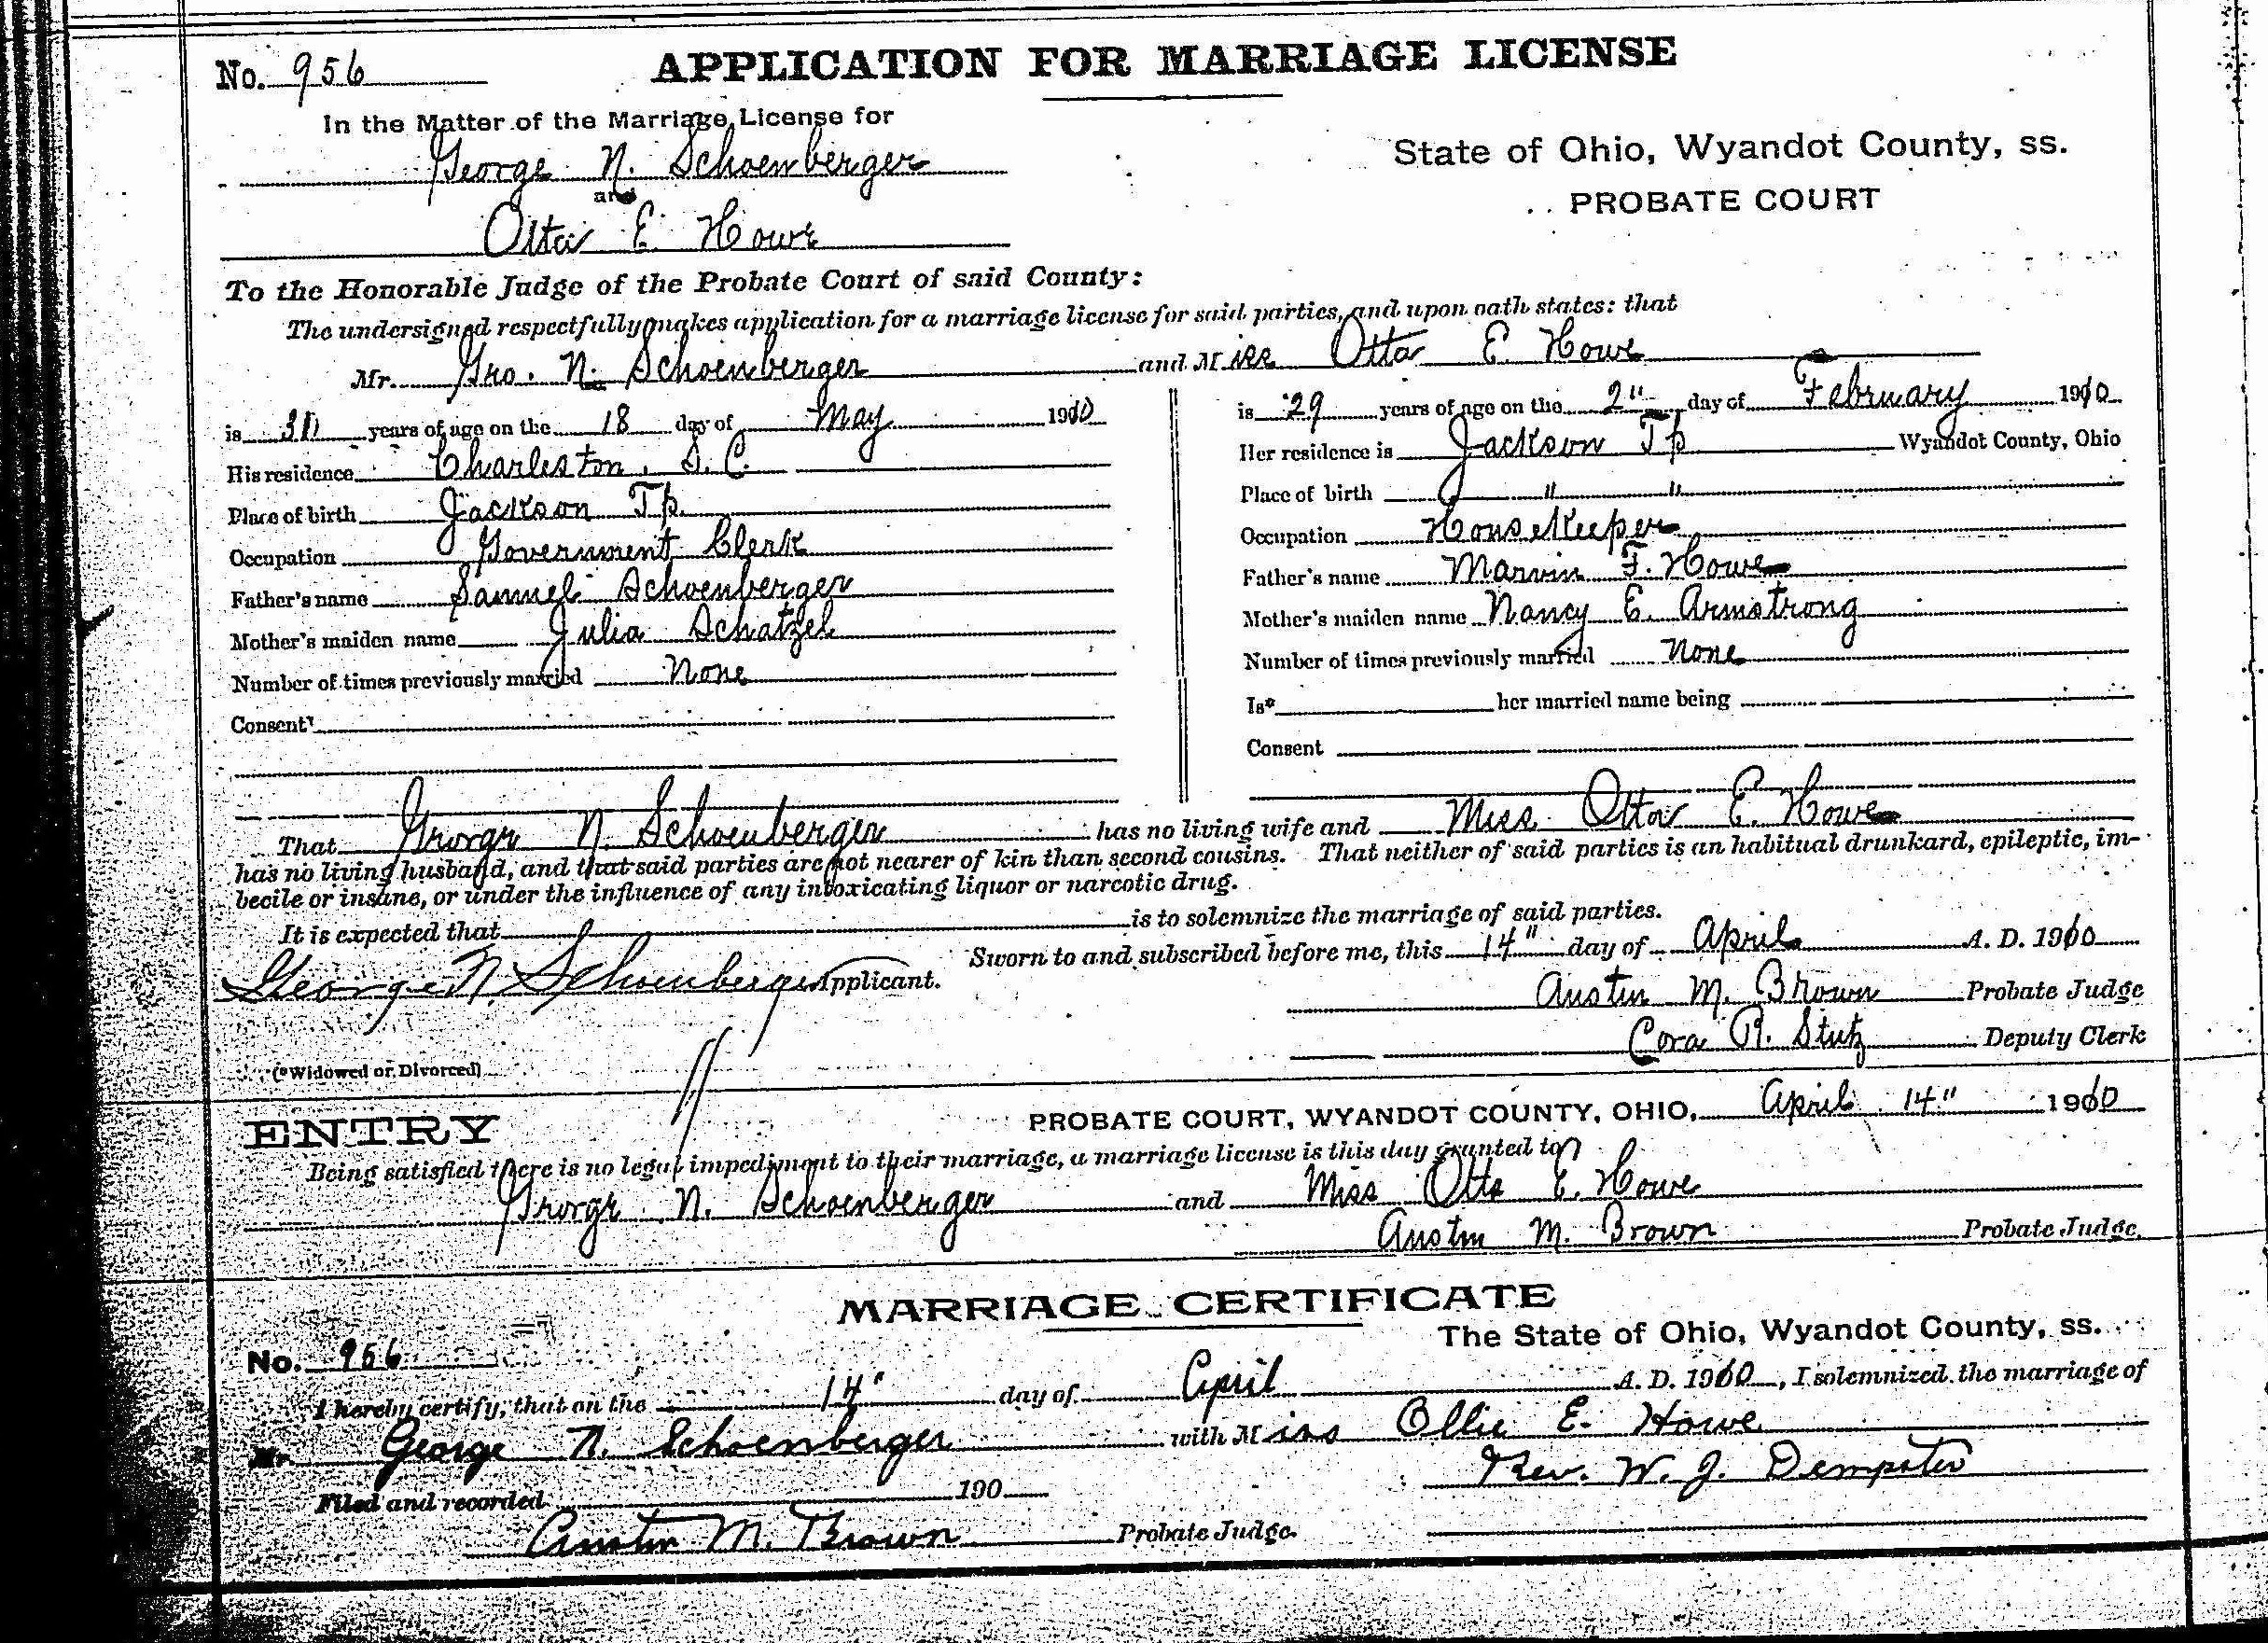 No. 956 APPLICATION FOR MARRIAGE LICENSE
In the Matter of the Marriage License for
George N. Schoenberger
and
Otta E. Howe
State of Ohio, Wyandot County, ss.
PROBATE COURT
To the Honorable Judge of the Probate Court of said County:
The undersigned respectfully makes application for a marriage license for said parties, and upon oath states: that
Mr. Geo. N. Schoenberger and Miss Otta E. Howe
is 31 years of age on the 18 day of May 1910
His residence Charleston, S. C.
Place of birth Jackson Tp.
Occupation Government Clerk
Father's name Samuel Schoenberger
Mother's maiden name Julia Schatzel
Number of times previously married None
Consent
is 29 years of age on the 2" day of February 1910
Her residence is Jackson Tp Wyandot County, Ohio
Place of birth " "
Occupation Housekeeper
Father's name Marvin F. Howe
Mother's maiden name Nancy E. Armstrong
Number of times previously married None
Is* her married name being
Consent
That George N. Schoenberger has no living wife and Miss Otta E. Howe
has no living husband, and that said parties are not nearer of kin than second cousins. That neither of said parties is an habitual drunkard, epileptic, im-
becile or insane, or under the influence of any intoxicating liquor or narcotic drug.
It is expected that is to solemnize the marriage of said parties.
Sworn to and subscribed before me, this 14" day of April A. D. 1910
George N. Schoenberger Applicant.
Austin M. Brown Probate Judge
Cora R. Stutz Deputy Clerk
(*Widowed or Divorced)
ENTRY PROBATE COURT, WYANDOT COUNTY, OHIO, April 14" 1910
Being satisfied there is no legal impediment to their marriage, a marriage license is this day granted to
George N. Schoenberger and Miss Otta E. Howe
Austin M. Brown Probate Judge.
MARRIAGE CERTIFICATE
No. 956 The State of Ohio, Wyandot County, ss.
I hereby certify, that on the 14" day of April A. D. 1910, I solemnized the marriage of
Mr. George N. Schoenberger with Miss Ollie E. Howe
Rev. W. J. Dempster
Filed and recorded 190
Austin M. Brown Probate Judge.